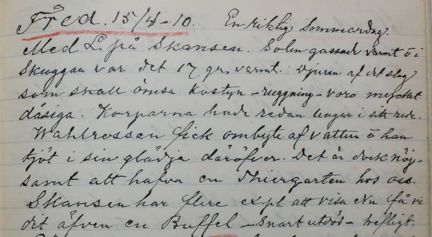 Fred. 15/4-10. En riktig Sommardag.
Med L på Skansen. Solen gassade varmt o i
skuggan var det 17 gr. varmt. Djuren af det slag
som skall ömsa kostym - ruggning - voro mycket
dåsiga. Korparna hade redan ungar i sitt rede.
Wahlrossen fick ombyte af vatten o han
tjöt i sin glädja däröfver. Det är dock nöj-
samt att hafva en Thiergarten hos oss.
Skansen har flere expl att visa Nu få vi
dit äfven en Buffel - snart utdöd -